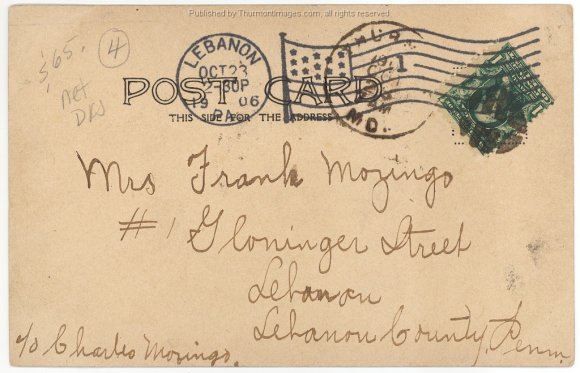 Published by Thurmontimages.com, all rights reserved
$65.
4
NET
LEBANON
OCT 23
2-30P
1906
PA.
MD.
POST CARD
THIS SIDE FOR THE ADDRESS
Mrs Frank Mozingo
#1 Gloninger Street
Lebanon
Lebanon County, Penn.
c/o Charles Mozingo.